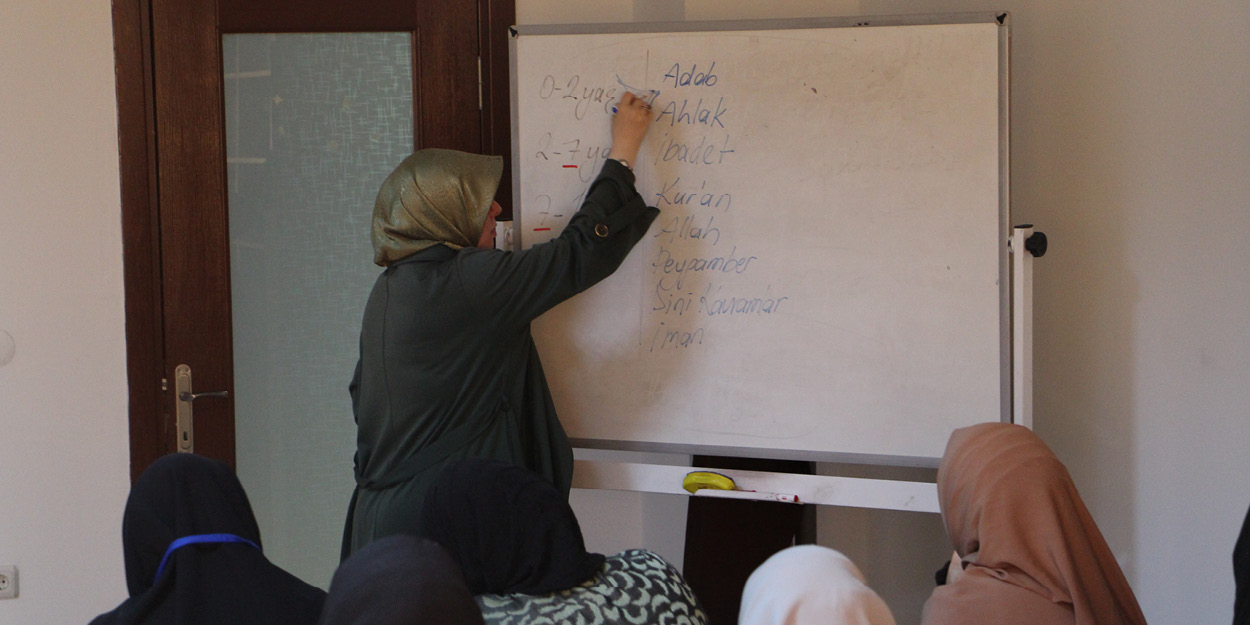 0-2 yaş
2-7 ya
7-
Adab
Ahlak
ibadet
Kur'an
Allah
Peypamber
Sini Kavramlar
iman